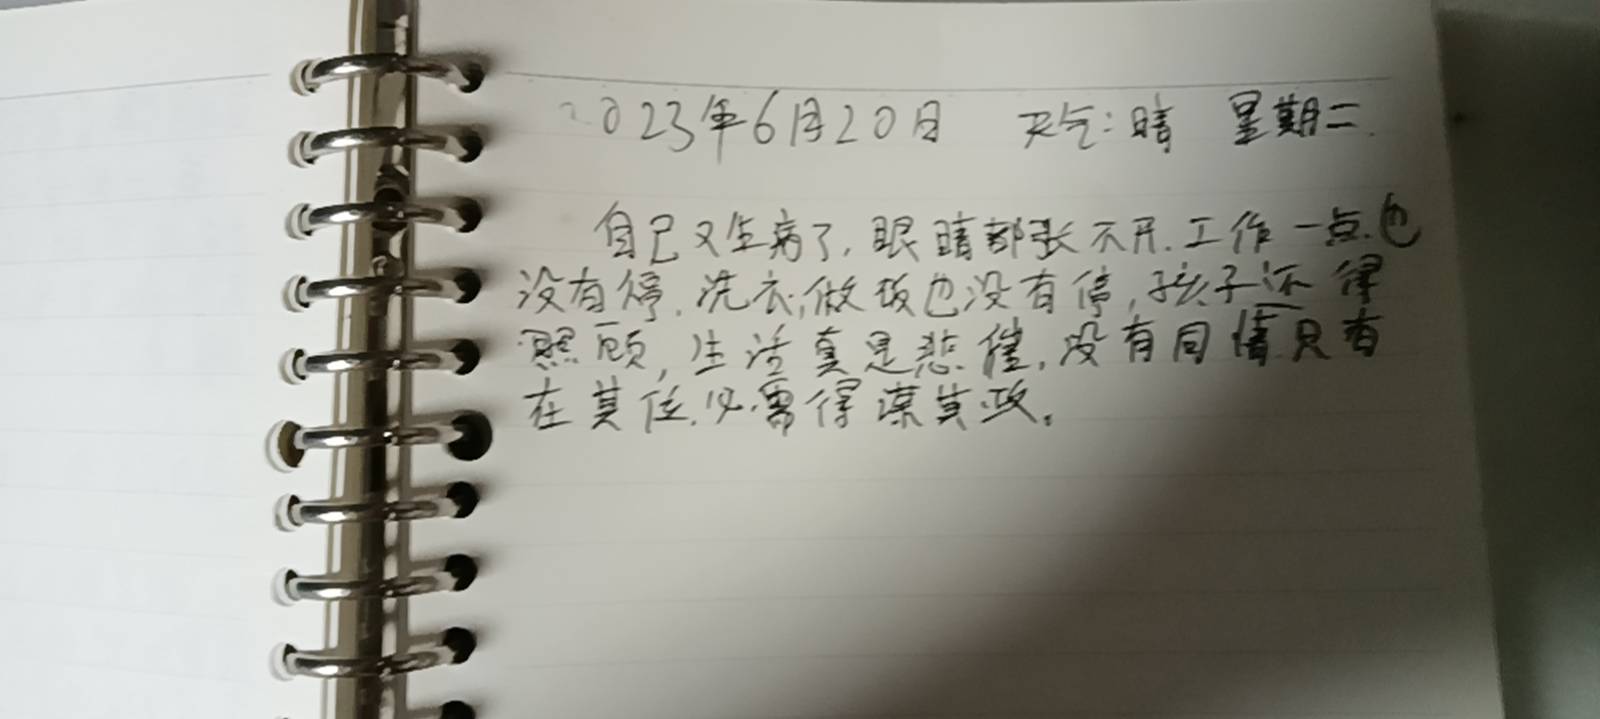 2023年6月20日 天气:晴 星期二.
自己又生病了,眼睛都张不开.工作一点也
没有停.洗衣,做饭也没有停,孩子还得
照顾,生活真是悲催,没有同情只有
在其位.必需得谋其政。